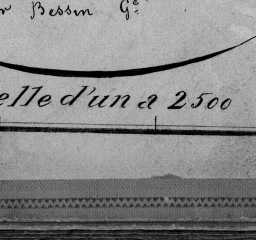 r Bessin Ge
elle d'un à 2500